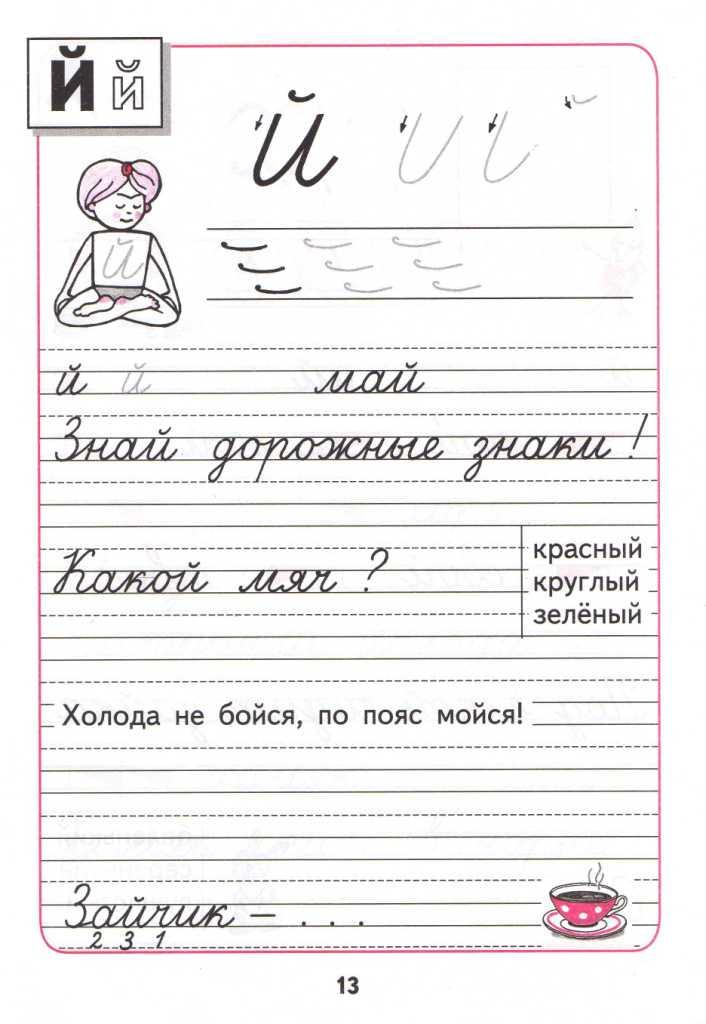 Й й
Й
Й
й й май
Знай дорожные знаки!
Какой мяч?
красный
круглый
зелёный
Холода не бойся, по пояс мойся!
Зайчик – . . .
2 3 1
13